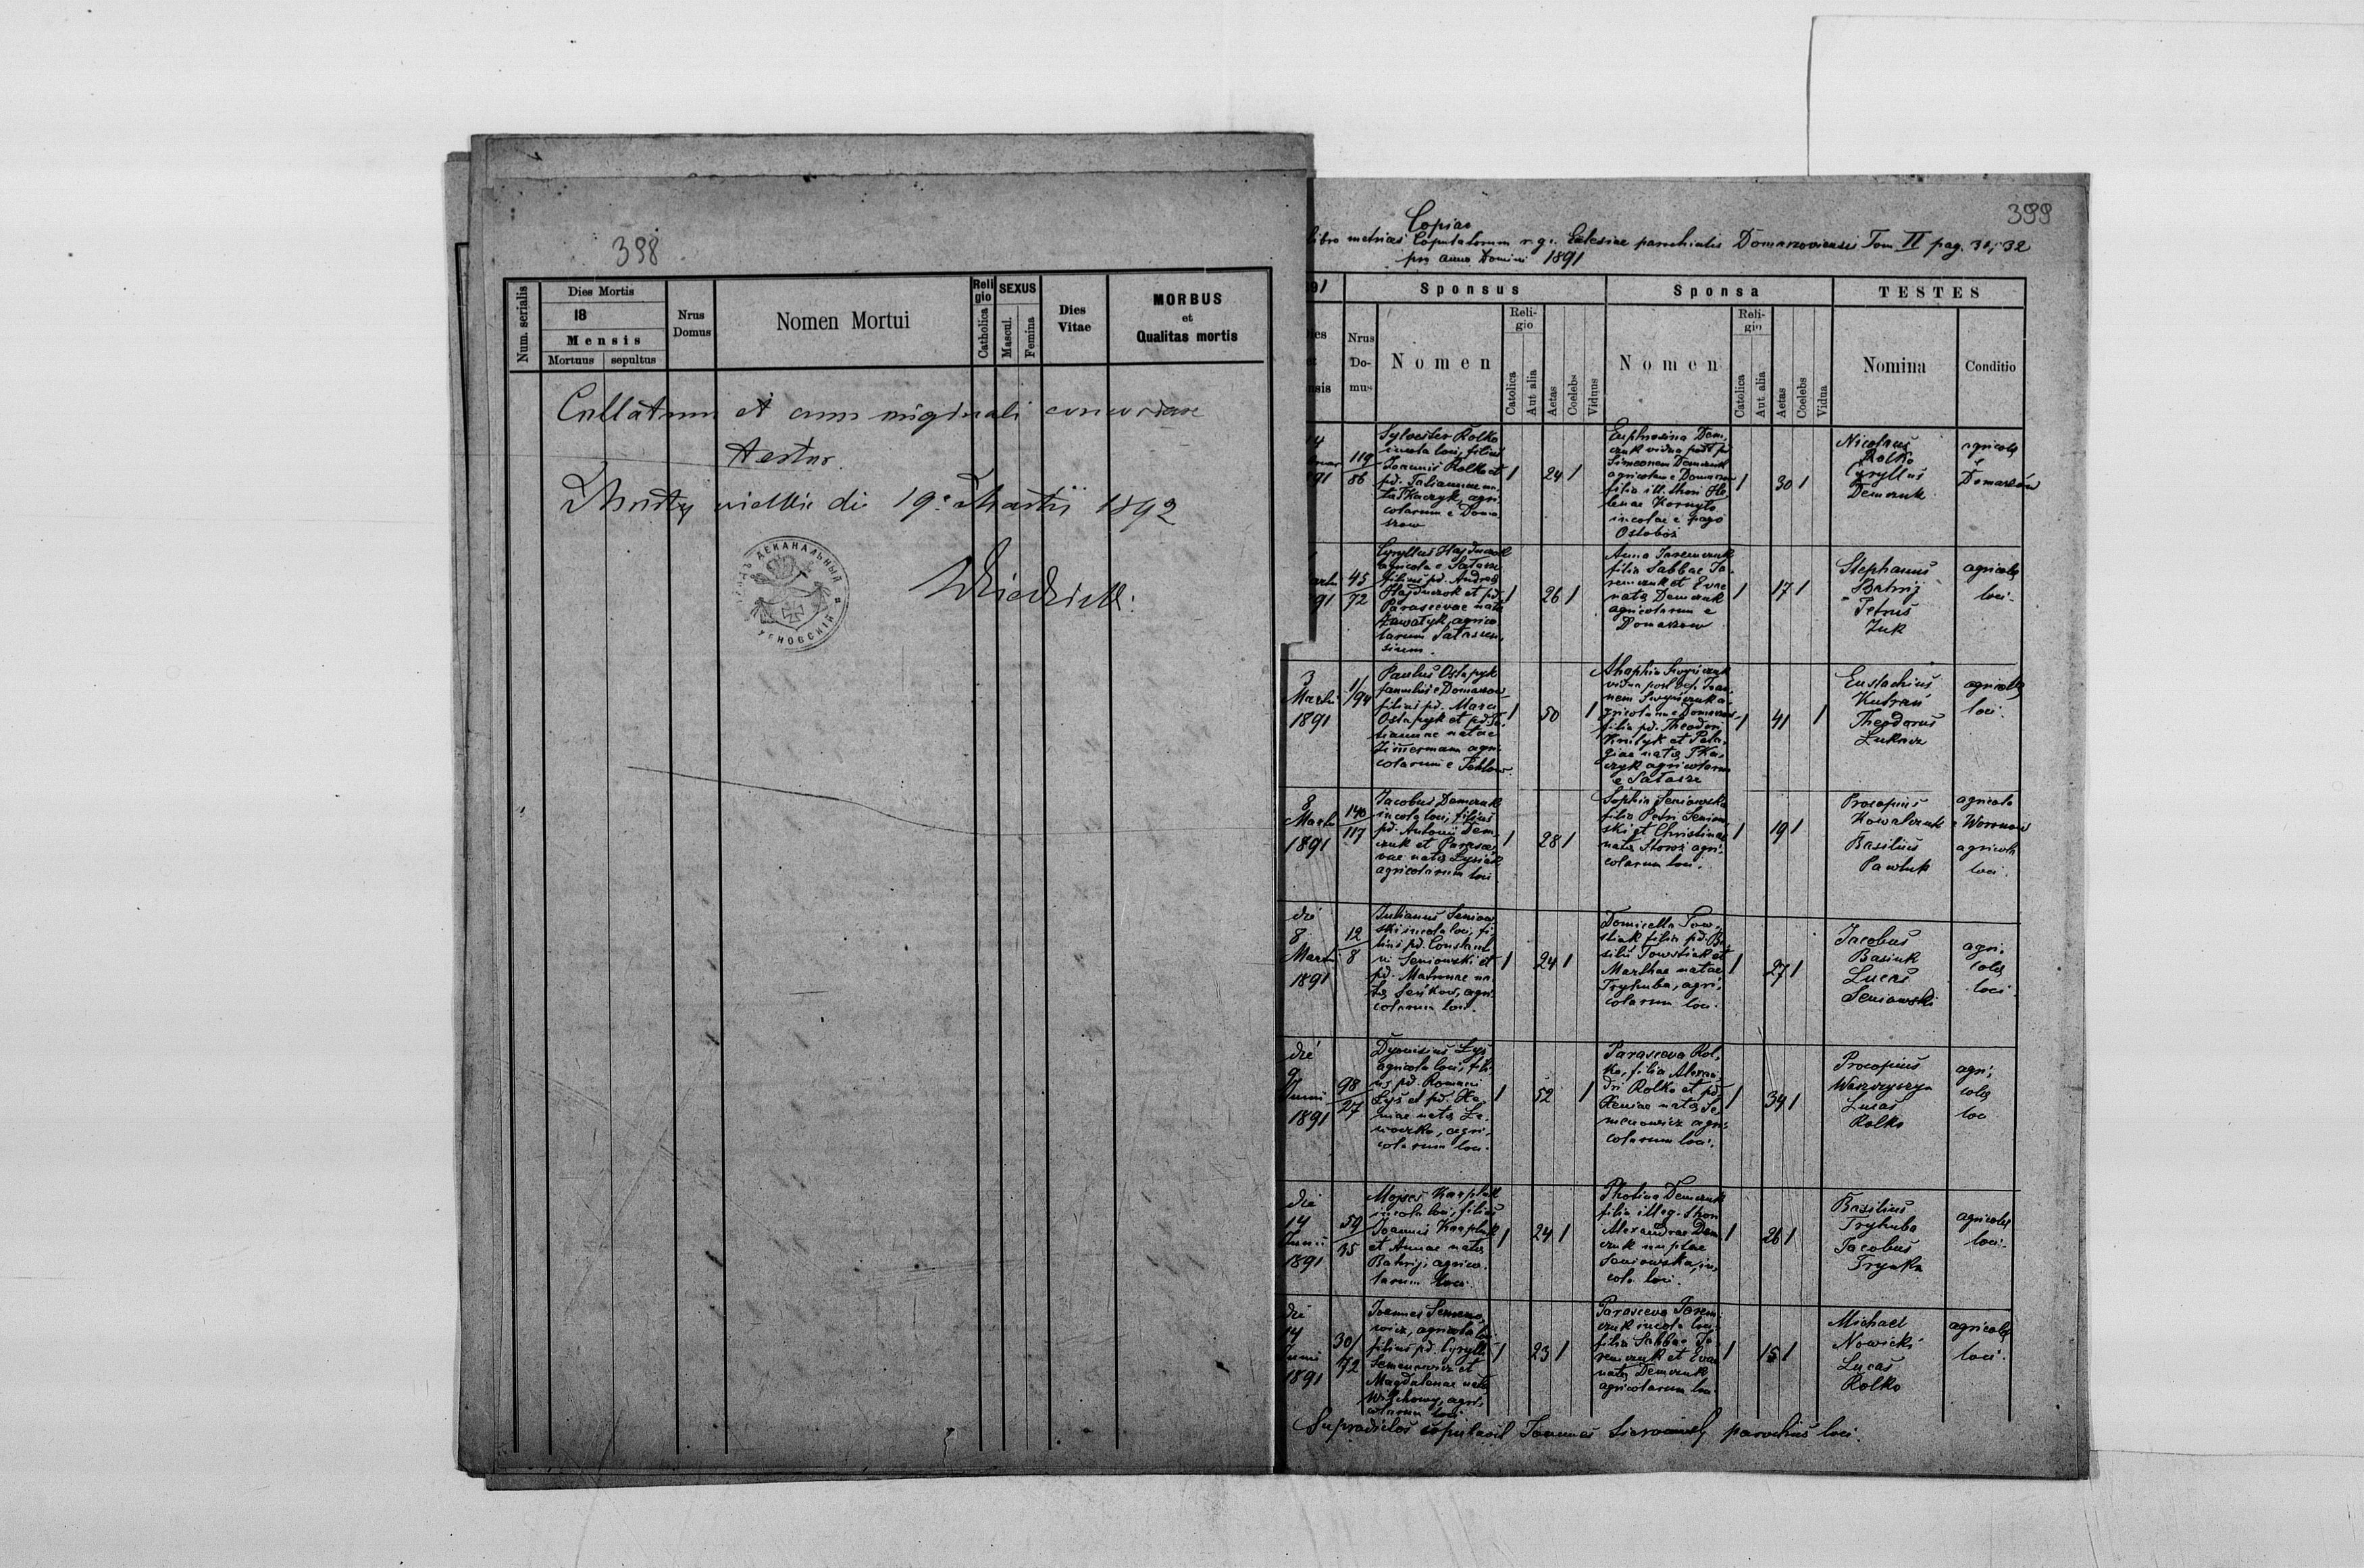 398
Num. serialis
Dies Mortis
18
Mensis
Mortuus sepultus
Nrus Domus
Nomen Mortui
Religio
Catholica
SEXUS
Mascul.
Femina
Dies Vitae
MORBUS
et
Qualitas mortis
Collatum et cum originali concordare
testor.
die 19. Martii 1892
ДЕКАНАЛЬНЫЙ
399
Copiae
libro metrices Copulatorum r. g. Eclesiae parochialis Domaszoviensis Tom II pag. 31, 32
pro anno Domini 1891
91
Sponsus
Sponsa
TESTES
Nrus Domus
Nomen
Religio
Catolica
Aut alia
Aetas
Coelebs
Viduus
Nomen
Religio
Catolica
Aut. alia
Aetas
Coelebs
Vidua
Nomina
Conditio
14
91
119
86
Sylvester Rolko
incola loci, filius
Joannis Rolko et
pd. Tatiannae na-
ta Tkaczyk, agri-
colarum e Doma
szow
1
24 1
Euphrosina Dem-
czuk vidua post pd
Simeonem Demczuk
agricolam e Domaszow
filia ill. thori He-
lenae Kornyło
incolae e pago
Ostobóż
1
30 1
Nicolaus
Rolko
Cyryllus
Demczuk
agricola
Domaszów
91
45
72
Cyryllus Hajduczok
agricola e Sałasze
filius pd. Andreas
Hajduczok et pd.
Parascevae nata
agrico
larum Sałaszen
sium.
1
26 1
Anna Jaremczuk
filia Sabbae Ja-
remczuk et Evae
nata Demczuk
agricolarum e
Domaszow
1
17 1
Stephanus
Batrij
Petrus
Żuk
agricola
loci.
3
Martii
1891
1/94
Paulus Ostapyk
famulus e Domaszow
filius pd. Marci
Ostapyk et pd. Ta-
tiannae natae
Zimerman agri
colarum e
1
50
1
Ahaphia
vidua post def. Joan-
nem
agricolam e Domaszow
filia pd. Theodori
et Pela-
giae nata Tka-
czyk agricolarum
e Sałasze
1
41
1
Eustachius
Theodorus
Łukasz
agricola
loci.
8
Martii
1891
140
117
Jacobus Demczuk
incola loci, filius
pd. Antonii Dem-
czuk et Parasce-
vae nata Łysiak
agricolarum loci
1
28 1
Sophia Seniowska
filia Petri Seniow-
ski et Christinae
nata Storoż agri-
colarum loci.
1
19 1
Procopius
Kowalczuk
Basilius
Pawluk
agricola
e Woronow
agricola
loci.
die
8
Martii
1891
12
8
Julianus Seniow
ski incola loci, fi-
lius pd. Constant
ni Seniowski et
pd. Matronae na-
ta Seńkow, agri
colarum loci.
1
24 1
Domicella Tow-
stiak filia pd. Ba
silii Towstiak et
Marthae natae
Tryhuba, agri-
colarum loci.
1
27 1
Jacobus
Basiuk
Lucas
Seniowski
agri-
cola
loci.
die
9
Junii
1891
98
27
Dyonisius Łyś
agricola loci, fili-
us pd. Romani
Łyś et pd. Xe-
niae nata Le-
woczko, agri-
colarum loci.
1
52
1
Parasceva Rol-
ko, filia Alexan-
dri Rolko et pd.
Xeniae nata Se-
menowicz agri-
colarum loci.
1
34 1
Procopius
Lucas
Rolko
agri-
cola
loci
die
14
Junii
1891
59
35
Mojses Karpluk
incola loci, filius
Joannis Karpluk
et Annae nata
Batrij, agrico-
larum loci.
1
24 1
Photina Demczuk
filia illeg. thori
Alexandrae Dem
czuk nuptae
Seniowska, in-
cola loci.
1
26 1
Basilius
Tryhuba
Jacobus
Frynka
agricola
loci.
die
14
Junii
1891
30/
72
Joannes Semeno-
wicz, agricola loci
filius pd. Cyrylli
Semenowicz et
Magdalenae nata
agri-
colarum loci
1
23 1
Parasceva Jarem-
czuk incola loci,
filia Sabbae Ja-
remczuk et Evae
nata Demczuk
agricolarum loci
1
15 1
Michael
Nowicki
Lucas
Rolko
agricola
loci.
Supradictos copulavit Joannes parochus loci.